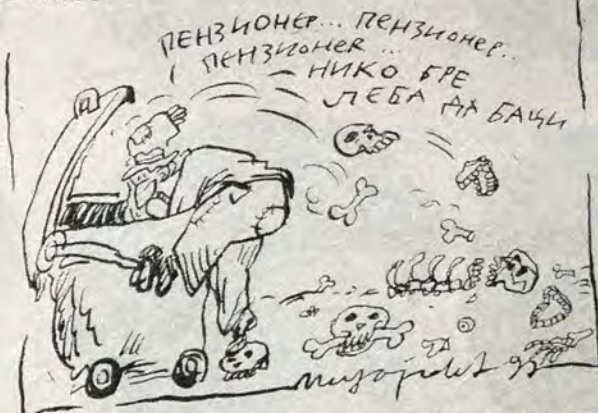 ПЕНЗИОНЕР... ПЕНЗИОНЕР..
И ПЕНЗИОНЕR...
- НИКО БРЕ
ЛЕБА ДА БАЦИ